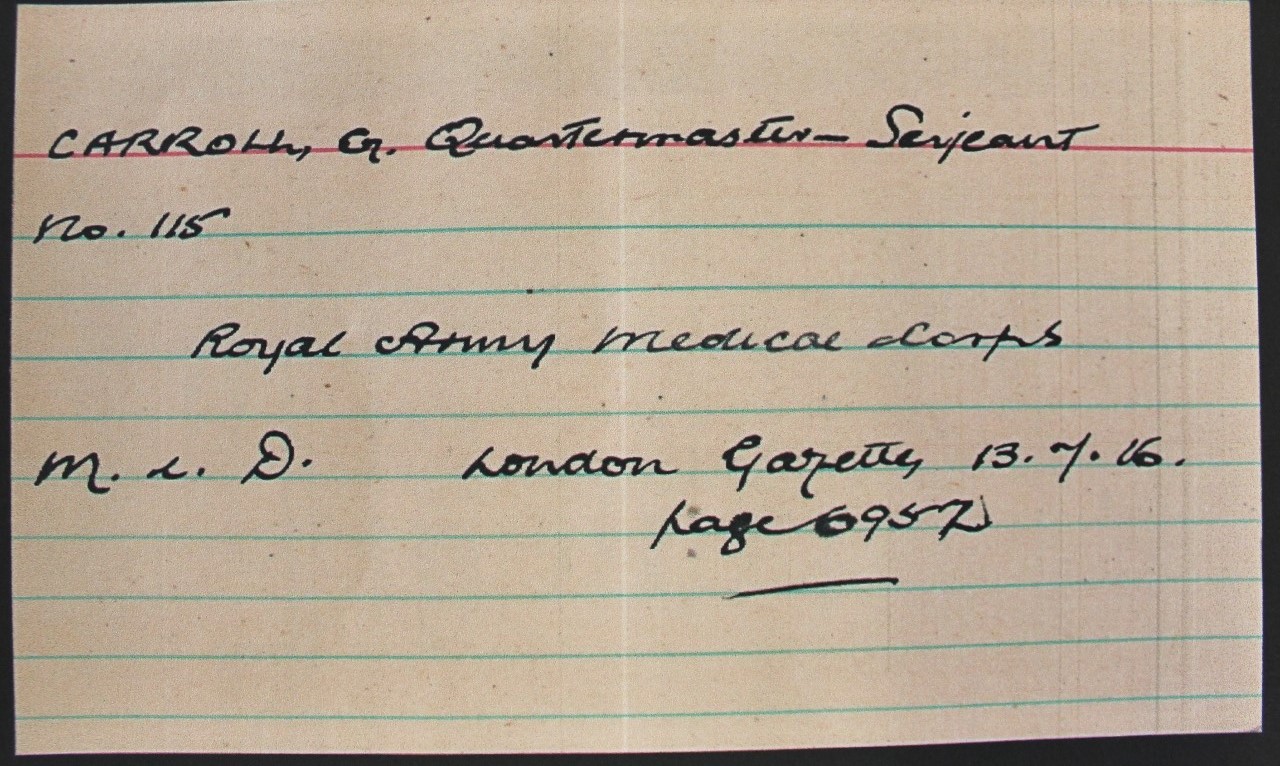 CARROLL, G. Quartermaster- Serjeant
No. 115
Royal Army Medical Corps
M. i. D. London Gazette, 13.7.16.
page 6952